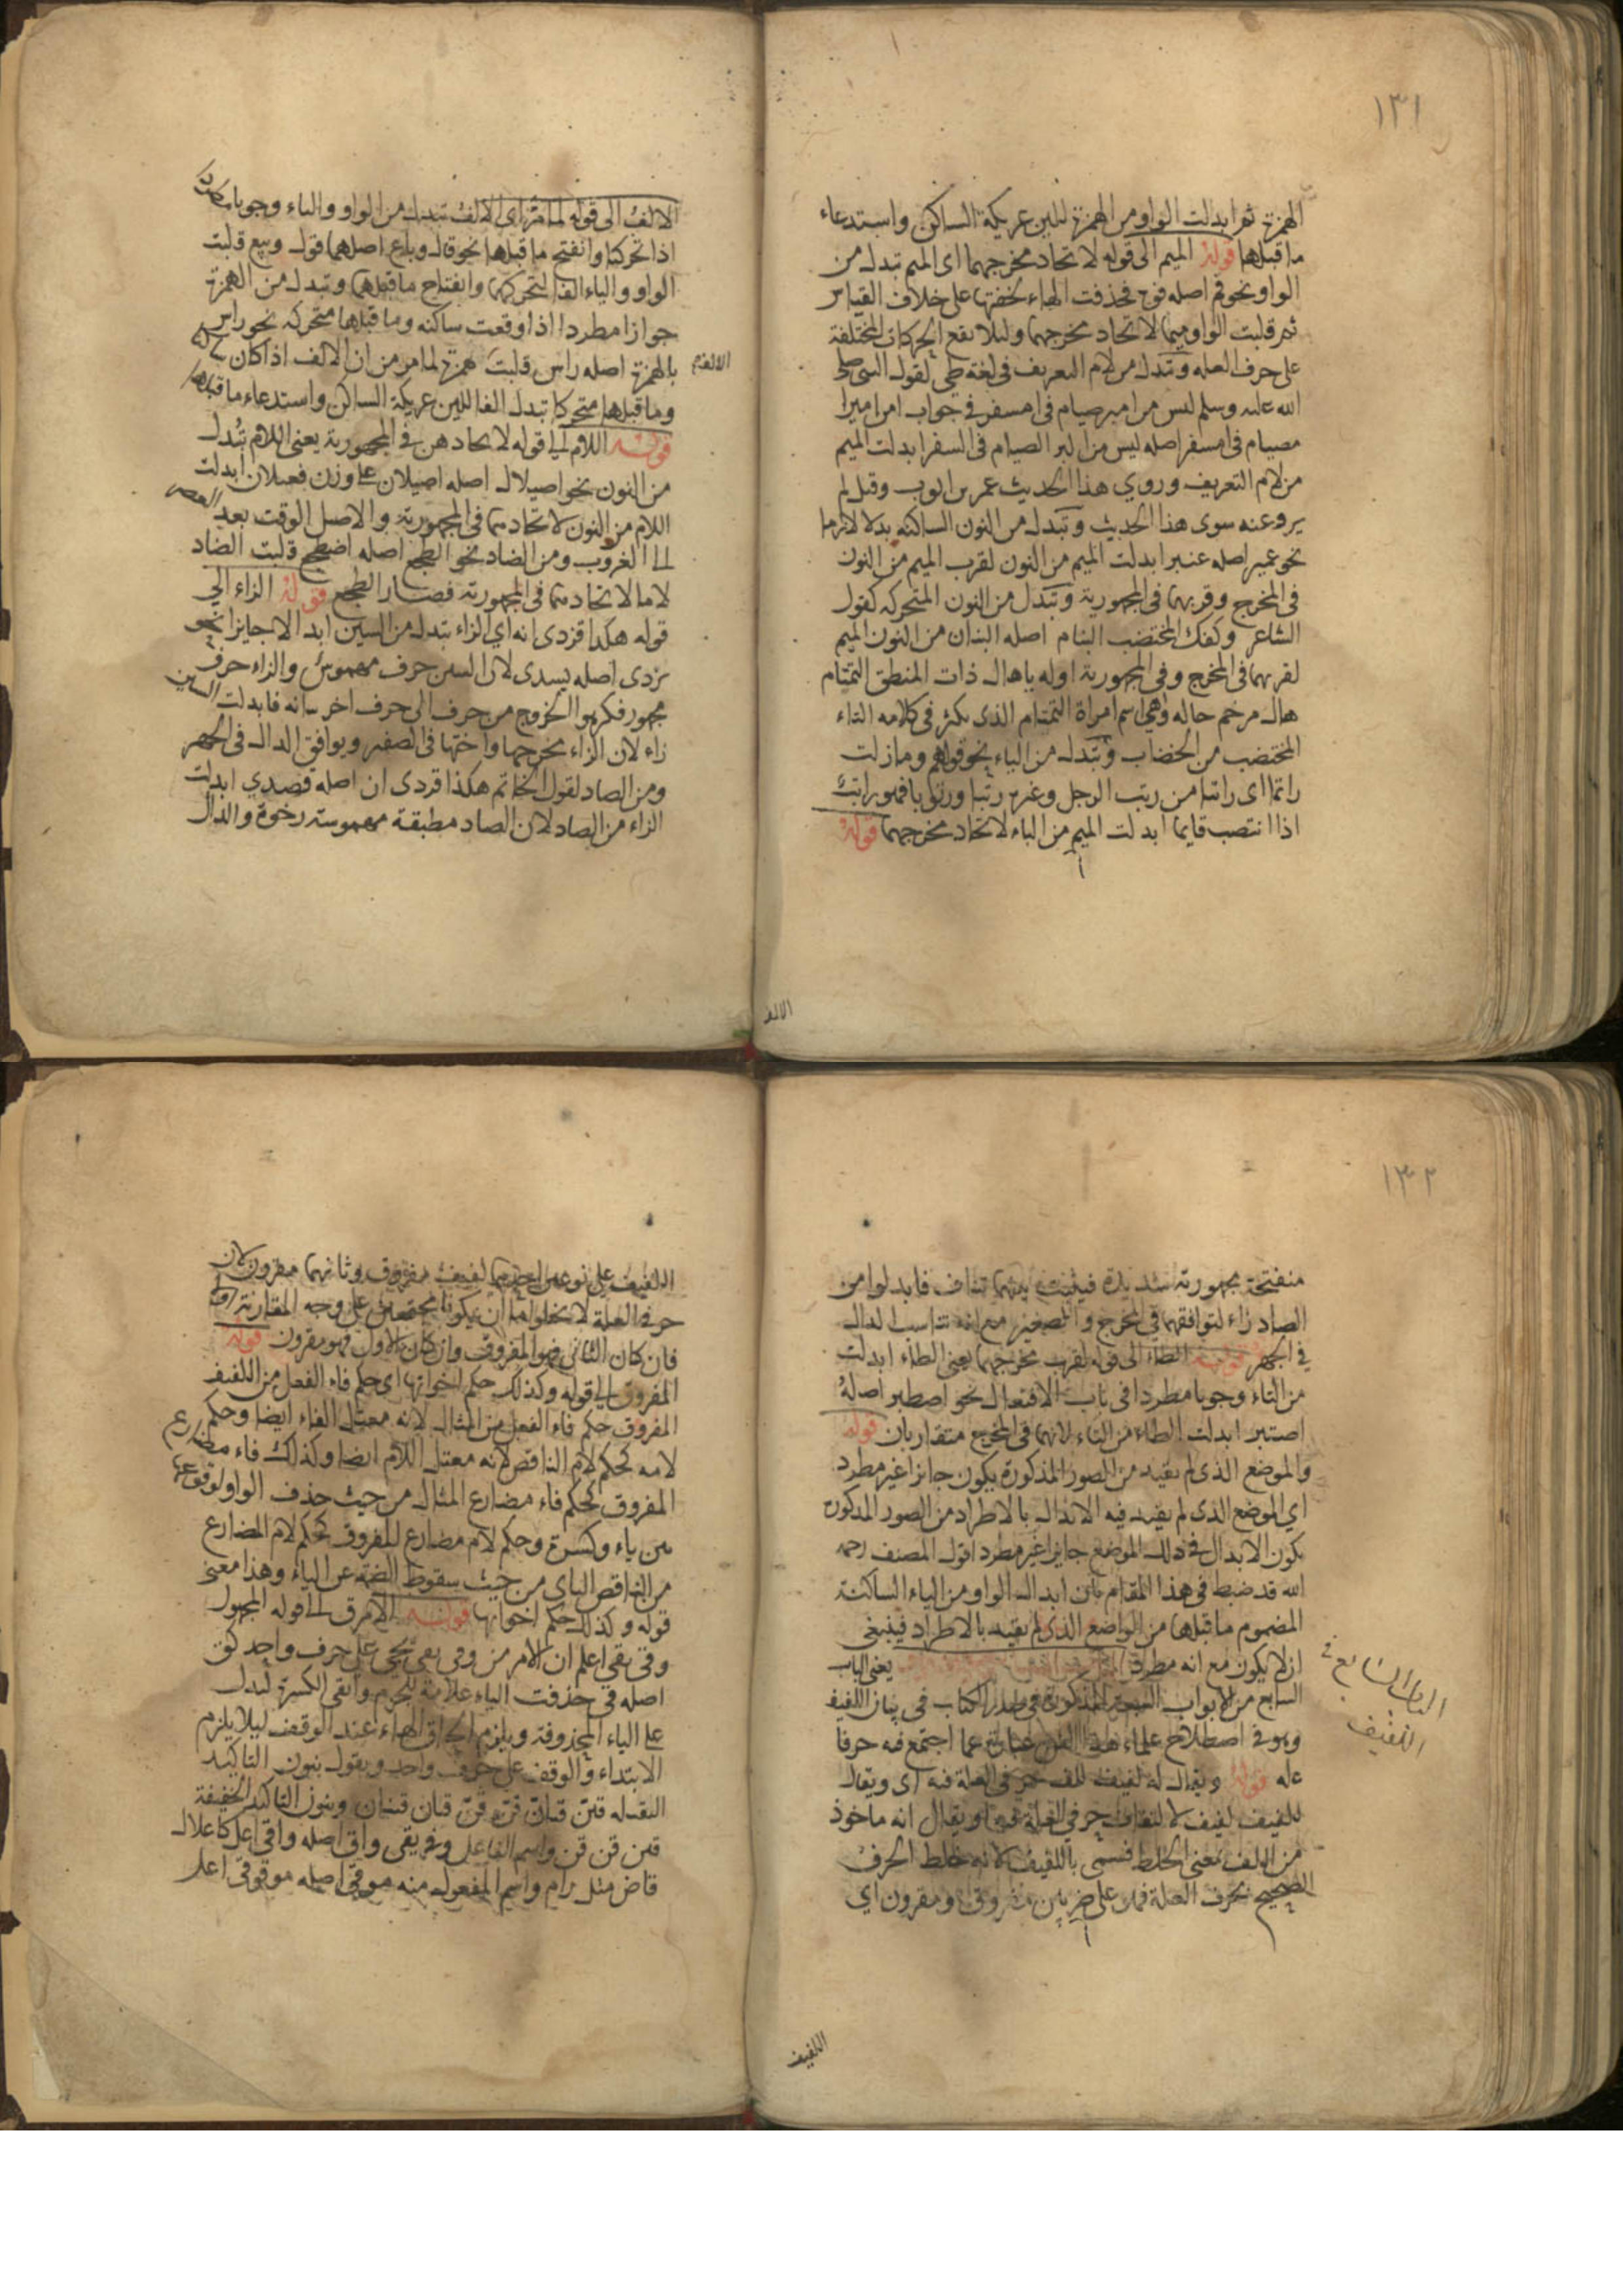 ١٣١
الهمزة ثم ابدلت الواو من الهمزة للين عريكة الساكن واستدعاء
ما قبلها قوله الميم الى قوله لاتحاد مخرجهما اى الميم تبدل من
الواو نحو فم اصله فوه فحذفت الهاء لخفتها على خلاف القياس
ثم قلبت الواو ميما لاتحاد مخرجهما ولئلا يقع الحركات المختلفة
على حرف العلة وتبدل من لام التعريف فى لغة طى لقول النبى صلى
الله عليه وسلم ليس من امبر صيام فى امسفر فى جواب امن امبر ا
مصيام فى امسفر اصله ليس من البر الصيام فى السفر ابدلت الميم
من لام التعريف وروي هذا الحديث عمر بن الوب وقيل لم
يروعنه سوى هذا الحديث وتبدل من النون الساكنة بدلا لازما
نحو عمبر اصله عنبر ابدلت الميم من النون لقرب الميم من النون
فى المخرج وقربهما فى المجهورية وتبدل من النون المتحركه كقول
الشاعر وكفك المختضب البنام اصله البنان من النون الميم
لقربهما فى المخرج وفى المجهورية اوله ياهال ذات المنطق التمتام
هال مرخم حاله وهى اسم امراة التمتام الذى يكثر فى كلامه التاء
المختضب من الخضاب وتبدل من الباء نحو قولهم وما زلت
راتما اى راتبا من رتب الرجل وغيره رتبا ورتوبا فهو راتب
اذا انتصب قايما ابدلت الميم من الباء لاتحاد مخرجهما قوله
الالف
الالف الى قوله لما مر اى الالف تبدل من الواو والياء وجوبا مطردا
اذا تحركتا وانفتح ما قبلهما نحو قال وباع اصلهما قول وبيع قلبت
الواو والياء الفا لتحركهما وانفتاح ما قبلهما وتبدل من الهمزة
جوازا مطردا اذا وقعت ساكنه وما قبلها متحركه نحو راس
بالهمزة اصله راس قلبت همزة لما مر من ان الالف اذا كان
وما قبلها متحركا تبدل الفا للين عريكة الساكن واستدعاء ما قبلها
قوله اللام الى قوله لاتحادهن فى المجهورية يعنى اللام تبدل
من النون نحو اصيلال اصله اصيلان على وزن فعيلان ابدلت
اللام من النون لاتحادهما فى المجهورية والاصل الوقت بعد العصر
الى الغروب ومن الضاد نحو الطجع اصله اضطجع قلبت الضاد
لاما لاتحادهما فى المجهورية فصار الطجع قوله الزاء الى
قوله هكذا فزدى انه اي الزاء تبدل من السين ابدالا جايزا نحو
يزدى اصله يسدى لان السين حرف مهموس والزاء حرف
مجهور فكرهوا الخروج من حرف الى حرف اخر ينافيه فابدلت السين
زاء لان الزاء مخرجها واختها فى الصفير ويوافق الدال فى الجهر
ومن الصاد لقول الحاتم هكذا فزدى ان اصله فصدي ابدلت
الزاء من الصاد لان الصاد مطبقة مهموسة رخوة والدال
١٣٢
منفتحة مجهورية شديدة فيثبت بينهما تناف فابدلوا من
الصاد زاء لتوافقهما فى المخرج والصفير مع انه تناسب الدال
فى الجهر قوله الطاء الى قوله لقرب مخرجهما يعنى الطاء ابدلت
من التاء وجوبا مطردا فى باب الافتعال نحو اصطبر اصله
اصتبر ابدلت الطاء من التاء لانهما فى المخرج متقاربان قوله
والموضع الذى لم يقيد من الصور المذكورة يكون جائزا غير مطرد
اي الموضع الذى لم يقيد فيه الابدال بالاطراد من الصور المذكورة
يكون الابدال فى ذلك الموضع جايزا غير مطرد اقول المصنف رحمه
الله قد ضبط فى هذا المقام بان ابدال الواو من الياء الساكنة
المضموم ما قبلها من المواضع الذى لم يقيد بالاطراد فينبغى
ان لا يكون مع انه مطرد يعنى الباب
السابع من الابواب السبعة المذكورة فى صدر الكتاب فى بيان اللفيف
وهو فى اصطلاح علماء هذا الفن عبارة عما اجتمع فيه حرفا
علة قوله ويقال له لفيف للف حرفى العلة فيه اى ويقال
للفيف لفيف لالتفاف حرفي العلة فيه ويقال انه ماخوذ
من اللف بمعنى الخلط فسمى باللفيف لانه خلط الحرف
الصحيح بحرف العلة قوله على ضربين مفروق ومقرون اي
الباب السابع فى
اللفيف
اللفيف
اللفيف على نوعين احدهما لفيف مفروق وثانيهما مقرون لان
حرف العلة لا يخلوا اما ان يكونا مجتمعين على وجه المقارنة او لا
فان كان الثانى فهو المفروق وان كان الاول فهو مقرون قوله
المفروق الى قوله وكذلك حكم اخواتها اى حكم فاء الفعل من اللفيف
المفروق حكم فاء الفعل من المثال لانه معتل الفاء ايضا وحكم
لامه كحكم لام الناقص لانه معتل اللام ايضا وكذلك فاء مضارع
المفروق كحكم فاء مضارع المثال من حيث حذف الواو لوقوعها
بين ياء وكسرة وحكم لام مضارع المفروق كحكم لام المضارع
من الناقص الياى من حيث سقوط الضمة عن الياء وهذا معنى
قوله وكذلك حكم اخواتها قوله الامر ق الى قوله المجهول
وقى يقى اعلم ان الامر من وقى يقى يجى على حرف واحد كق
اصله قى حذفت الياء علامة للجزم وابقى الكسرة ليدل
على الياء المحذوفة ويلزم الحاق الهاء عند الوقف ليلا يلزم
الابتداء والوقف على حرف واحد ويقول بنون التاكيد
الثقيله قين قيان قن قن قيان قينان وبنون التاكيد الخفيفة
قين قن قن واسم الفاعل وغر يقى واق اصله واقى اعل كاعلال
قاض مثل رام واسم المفعول منه موقى اصله موقوقى اعلر